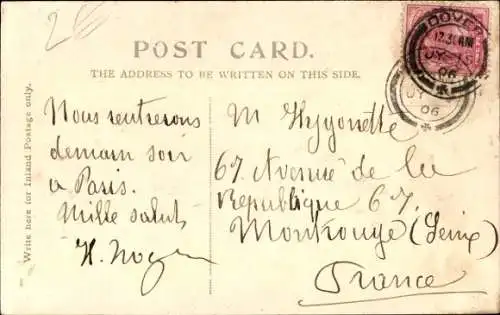 2
POST CARD.
THE ADDRESS TO BE WRITTEN ON THIS SIDE.
Write here for Inland Postage only.
DOVER
12.30AM
JY
06
JY
06
Nous rentrerons
demain soir
à Paris.
Mille saluts
H.
M Huyonette
67 Avenue de la
République 67.
Montrouge (Seine)
France